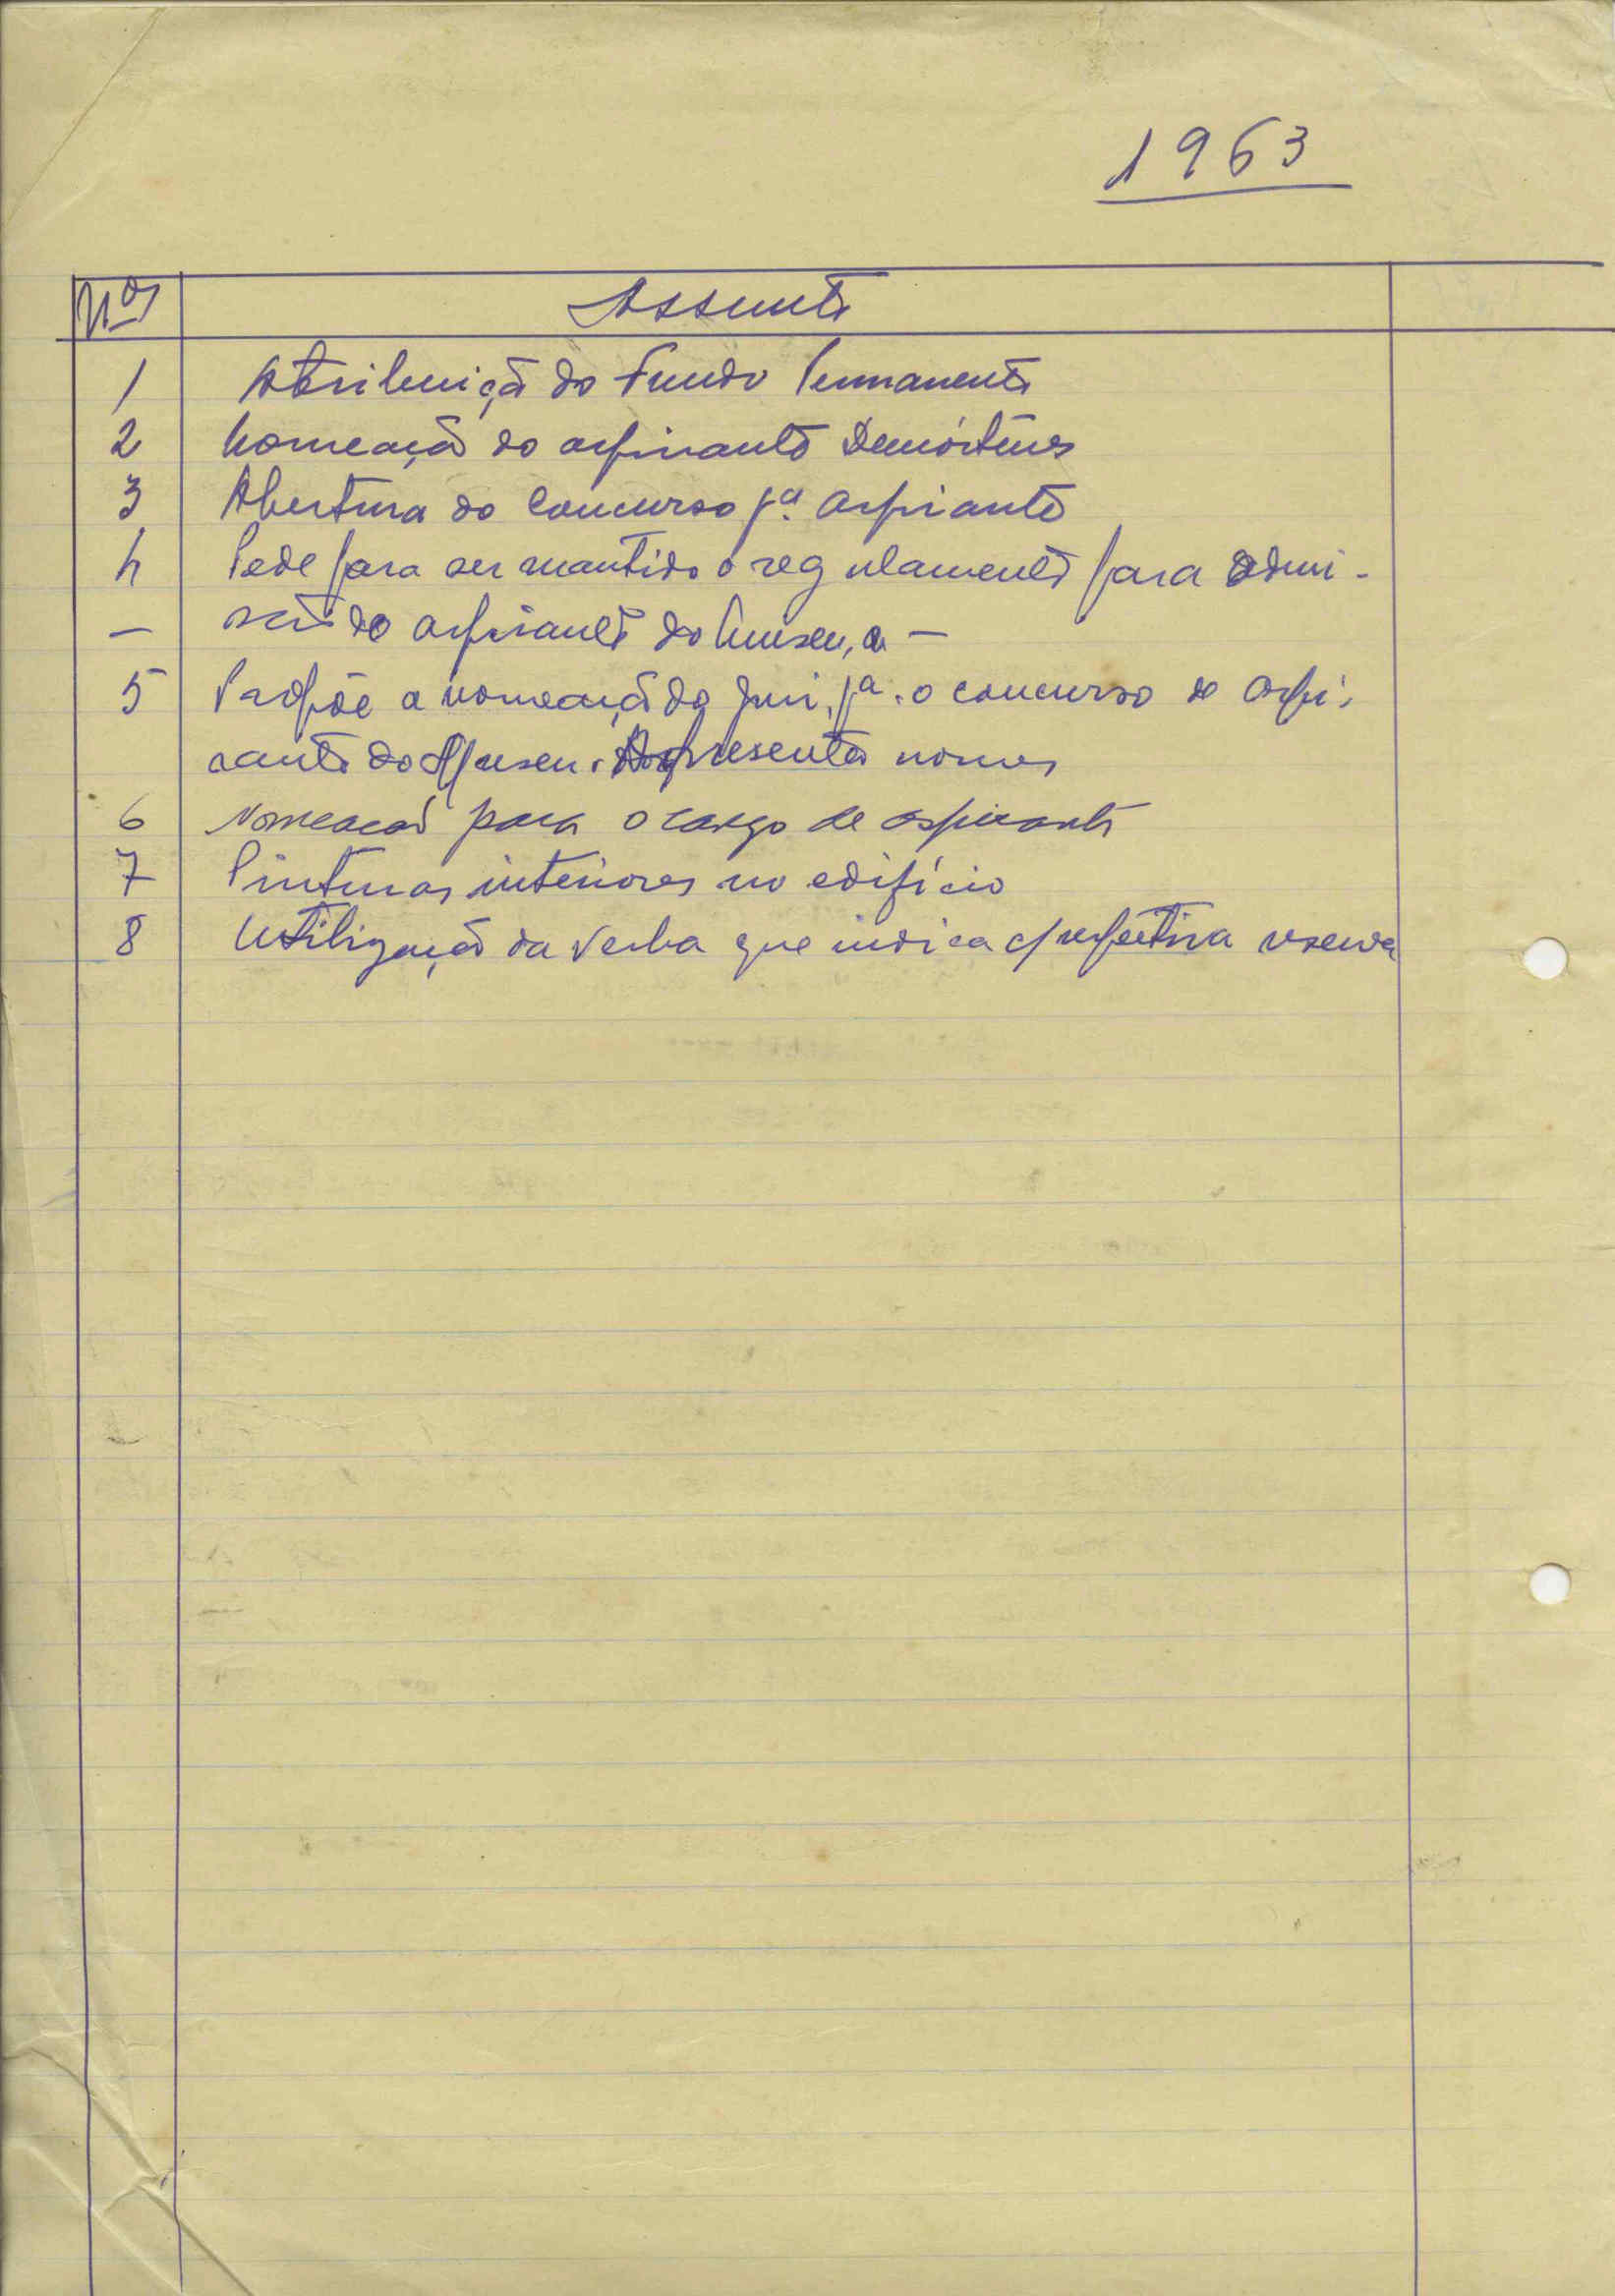 1963
Nos Assunto
1 Atribuição do Fundo Permanente
2 Nomeação do aspirante Demóstenes
3 Abertura do concurso pª aspirante
4 Pede para ser mantido o regulamento para admi-
— ssão do aspirante do Museu, a —
5 Propõe a nomeação do juri, pª. o concurso de aspi-
rante do Museu. Apresenta nomes
6 Nomeação para o cargo de aspirante
7 Pinturas interiores no edifício
8 Utilização da verba que indica c/ respectiva reserva